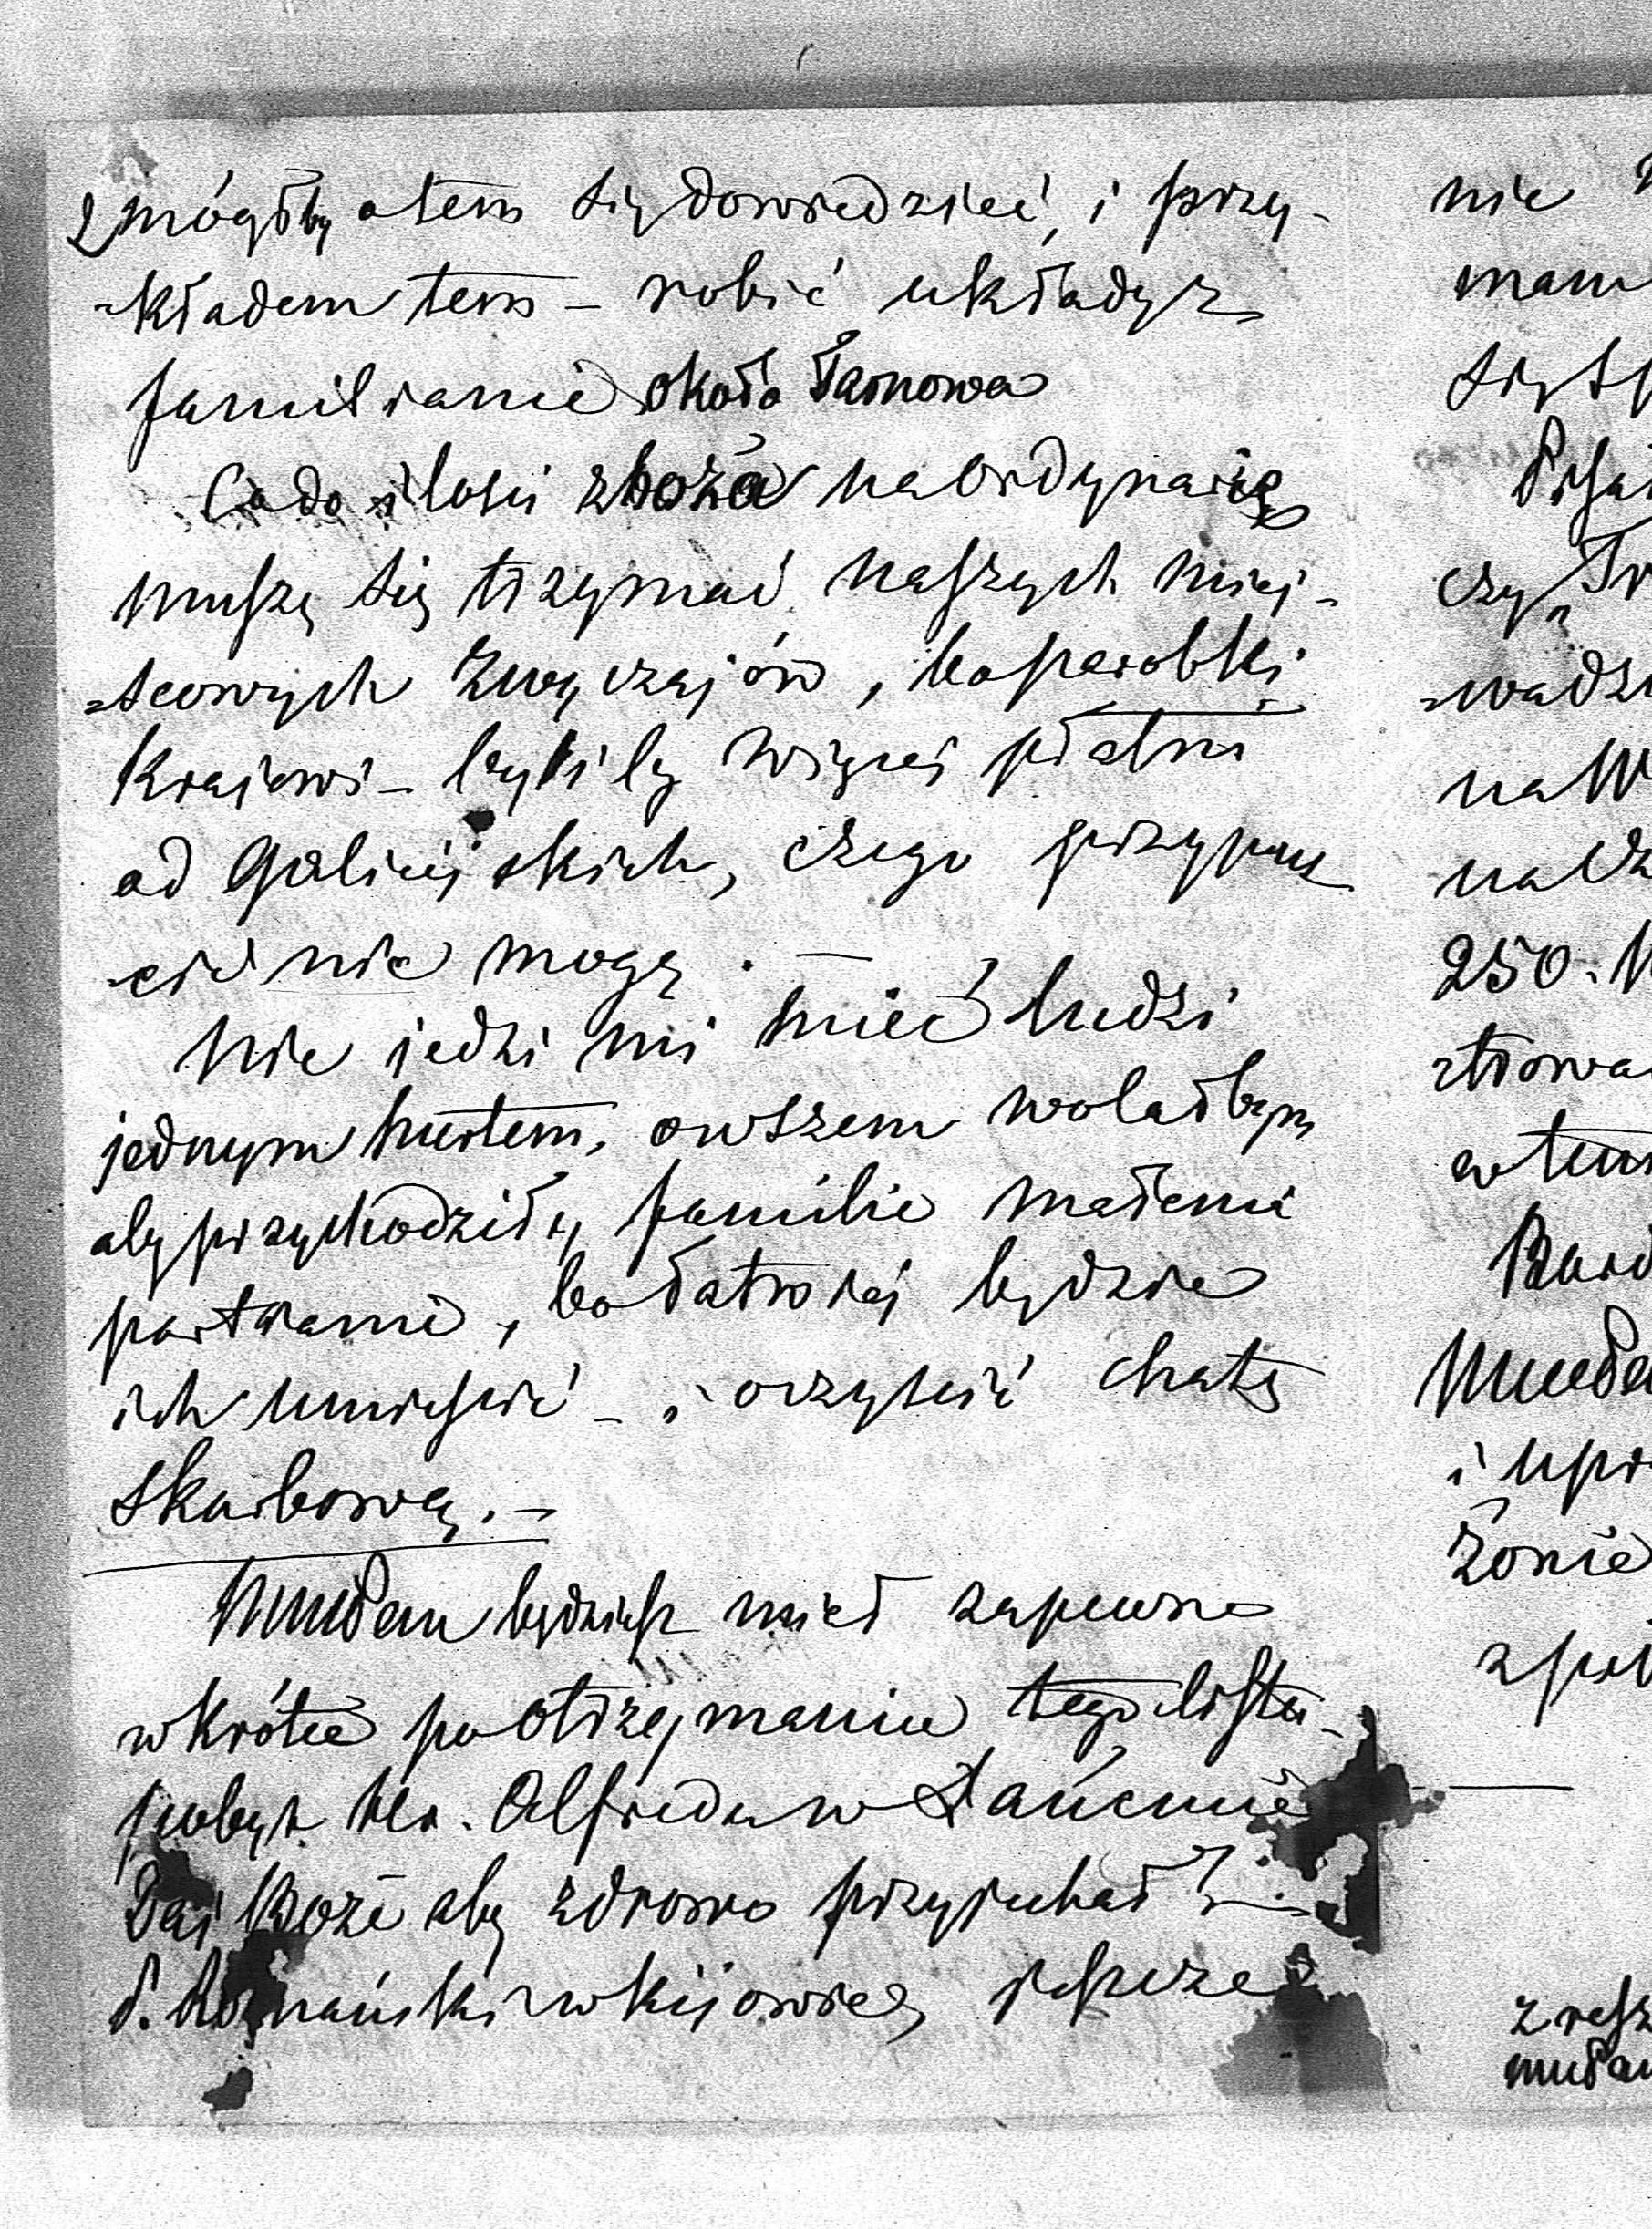 mógłby o tem się dowiedzieć, i przy-
-kładem tem – robić układy z
familiami około Tarnowa
Co do ilości zboża na ordynarię
muszę się trzymać naszych miej-
=scowych zwyczajów, bo parobki
Krajowi – byliby więcej płatni
od Galicijskich, czego przypuś
-cić nie mogę. –
Nie jedzi mi mieć ludzi
jednym hurtem, owszem wolałbym
aby przychodziły familie małemi
partiami, bo łatwiej będzie
ich umieścić – i oczyścić chatę
skarbową. –
będziesz miał zapewne
wkrótce po otrzymaniu tego listu –
pobyt Hr. Alfreda w Łańcucie
Daj Boże aby zdrowo przyjechał
P. w Kijowie, jeszcze
nie
czy
=wadzi
na W
na
250.
w tem
i
Żonie